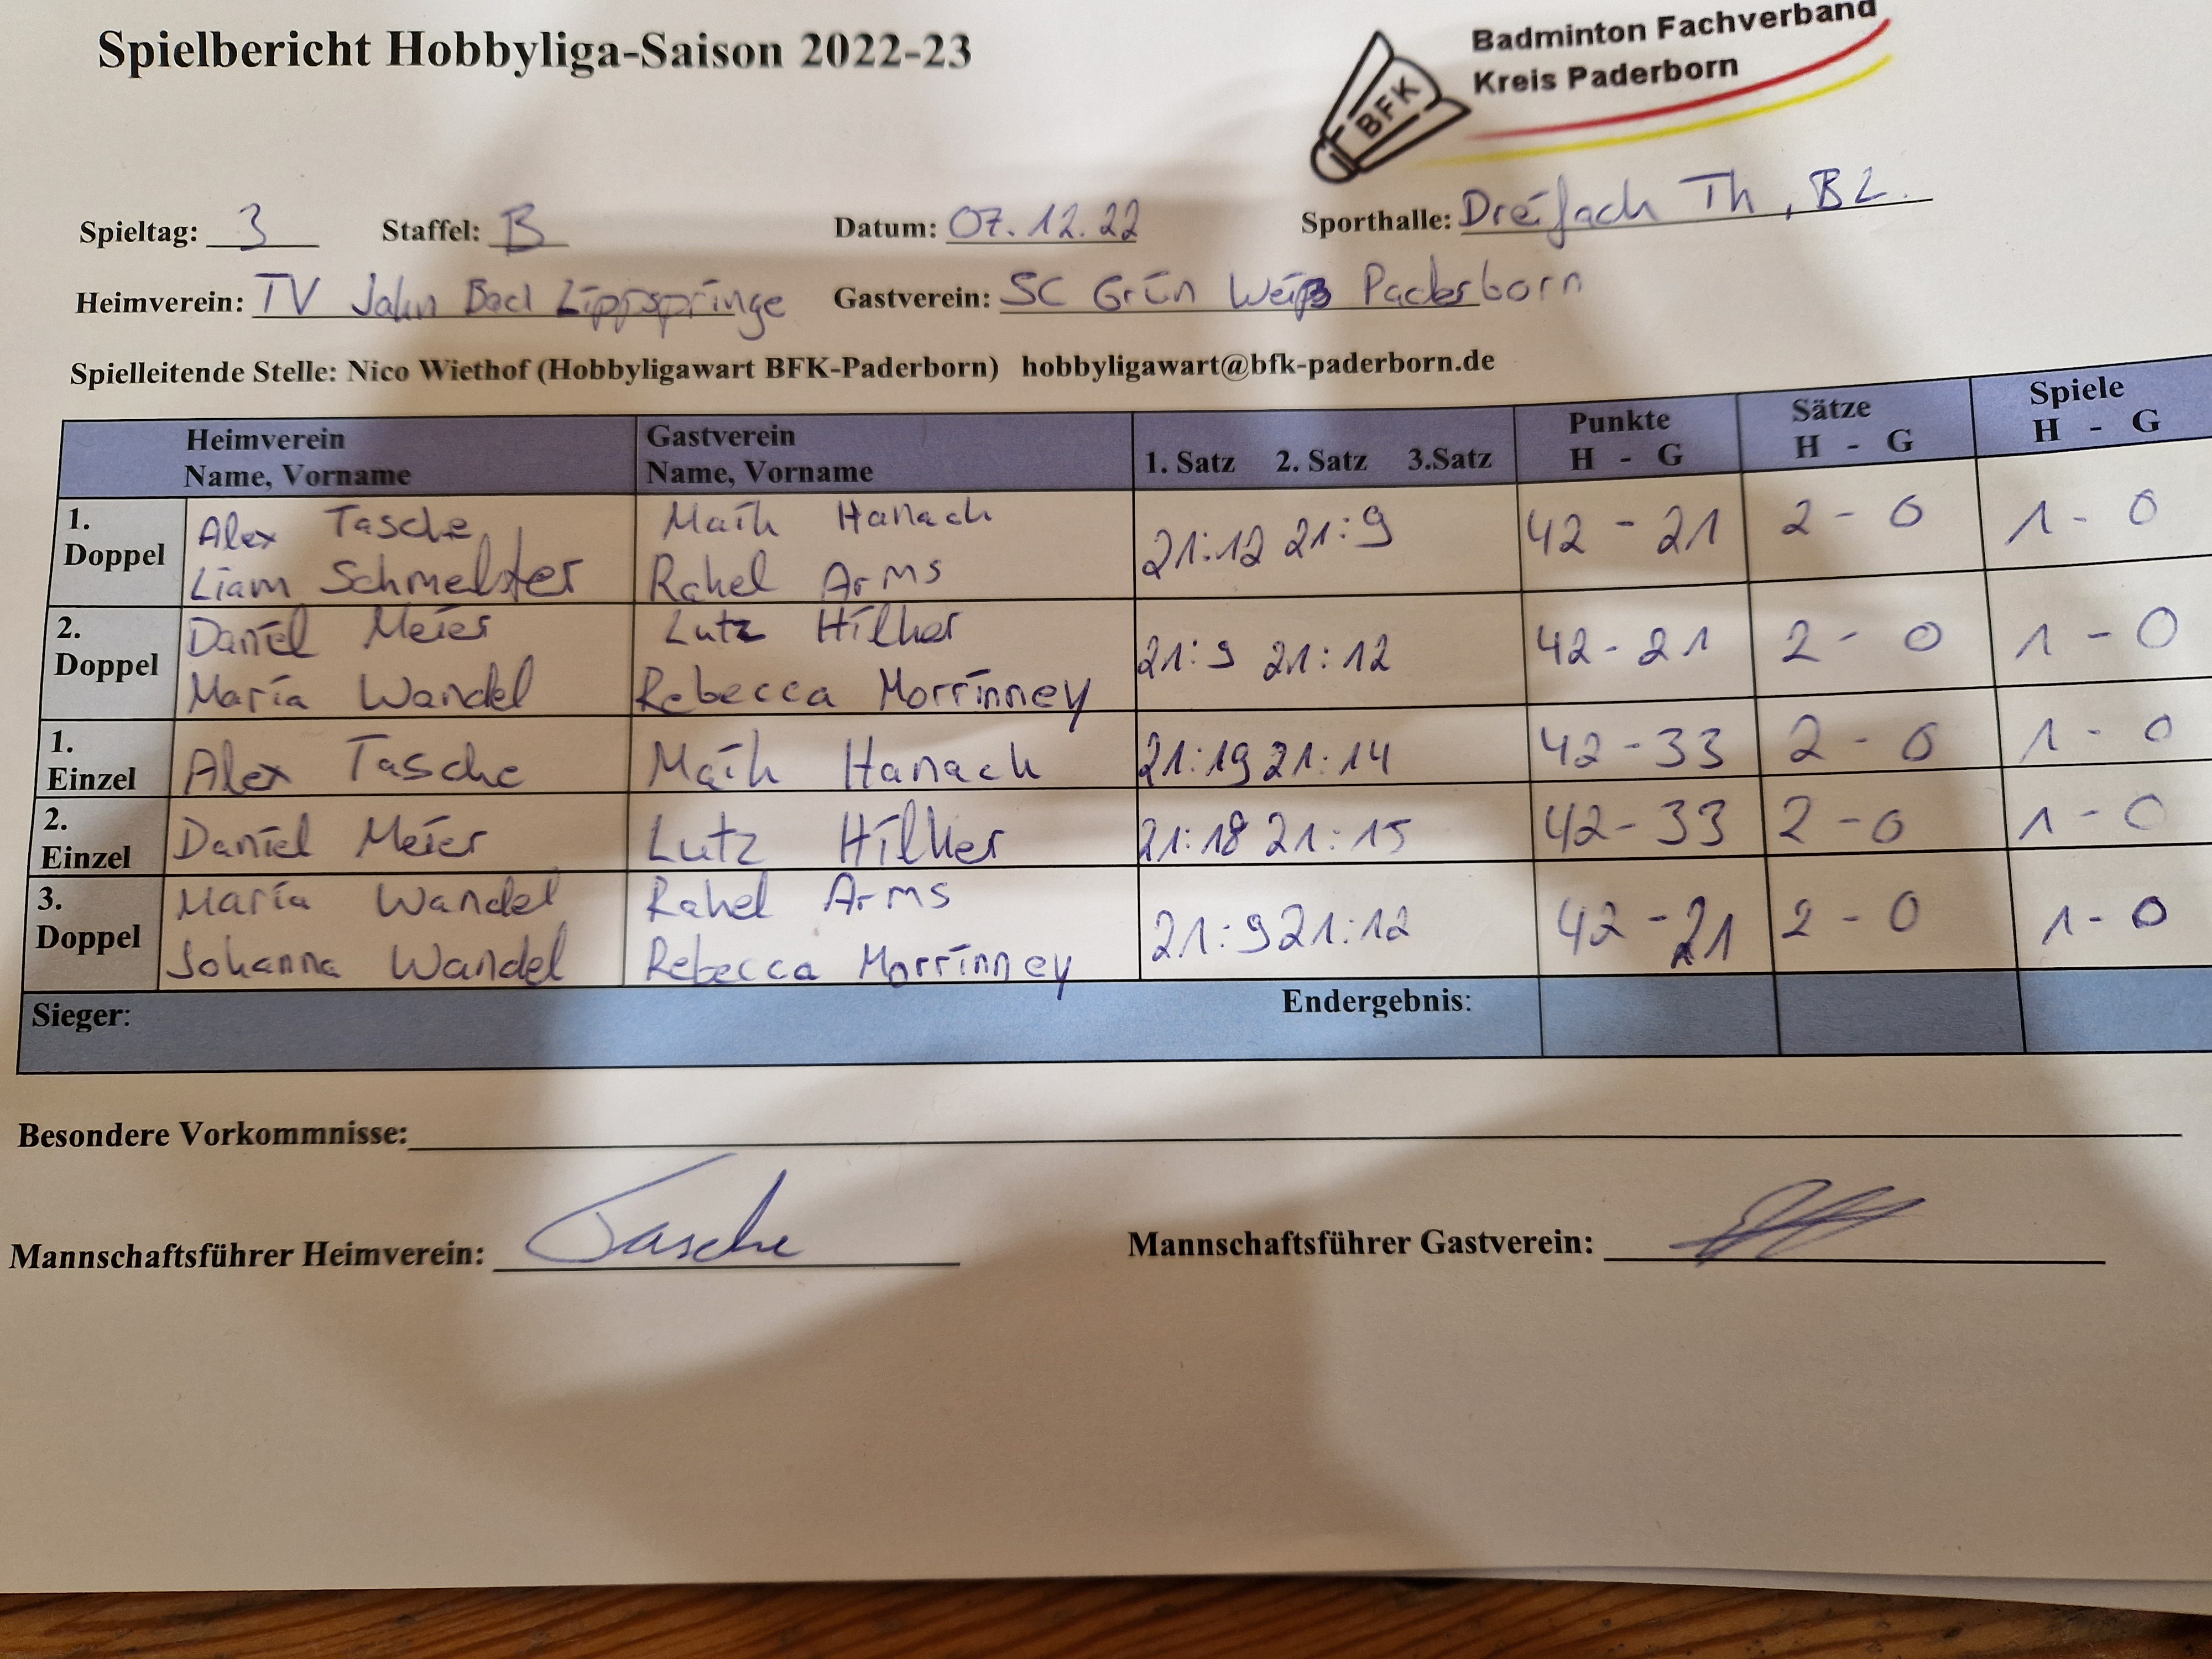 Spielbericht Hobbyliga-Saison 2022-23
Badminton Fachverband
Kreis Paderborn
BFK
Spieltag: 3 Staffel: B Datum: 07.12.22 Sporthalle: Dreifach Th, BL.
Heimverein: TV Jahn Bad Lippspringe Gastverein: SC Grün Weiß Paderborn
Spielleitende Stelle: Nico Wiethof (Hobbyligawart BFK-Paderborn) hobbyligawart@bfk-paderborn.de
Heimverein Gastverein Punkte Sätze Spiele
Name, Vorname Name, Vorname 1. Satz 2. Satz 3.Satz H - G H - G H - G
1. Alex Tasche Maik Hanach
Doppel 21:12 21:9 42 - 21 2 - 0 1 - 0
Liam Schmelter Rahel Arms
2. Daniel Meier Lutz Hilker
Doppel 21:9 21:12 42 - 21 2 - 0 1 - 0
Maria Wandel Rebecca Morrinney
1.
Einzel Alex Tasche Maik Hanach 21:19 21:14 42 - 33 2 - 0 1 - 0
2.
Einzel Daniel Meier Lutz Hilker 21:18 21:15 42 - 33 2 - 0 1 - 0
3. Maria Wandel Rahel Arms
Doppel 21:9 21:12 42 - 21 2 - 0 1 - 0
Johanna Wandel Rebecca Morrinney
Sieger: Endergebnis:
Besondere Vorkommnisse:
Mannschaftsführer Heimverein: Tasche Mannschaftsführer Gastverein: